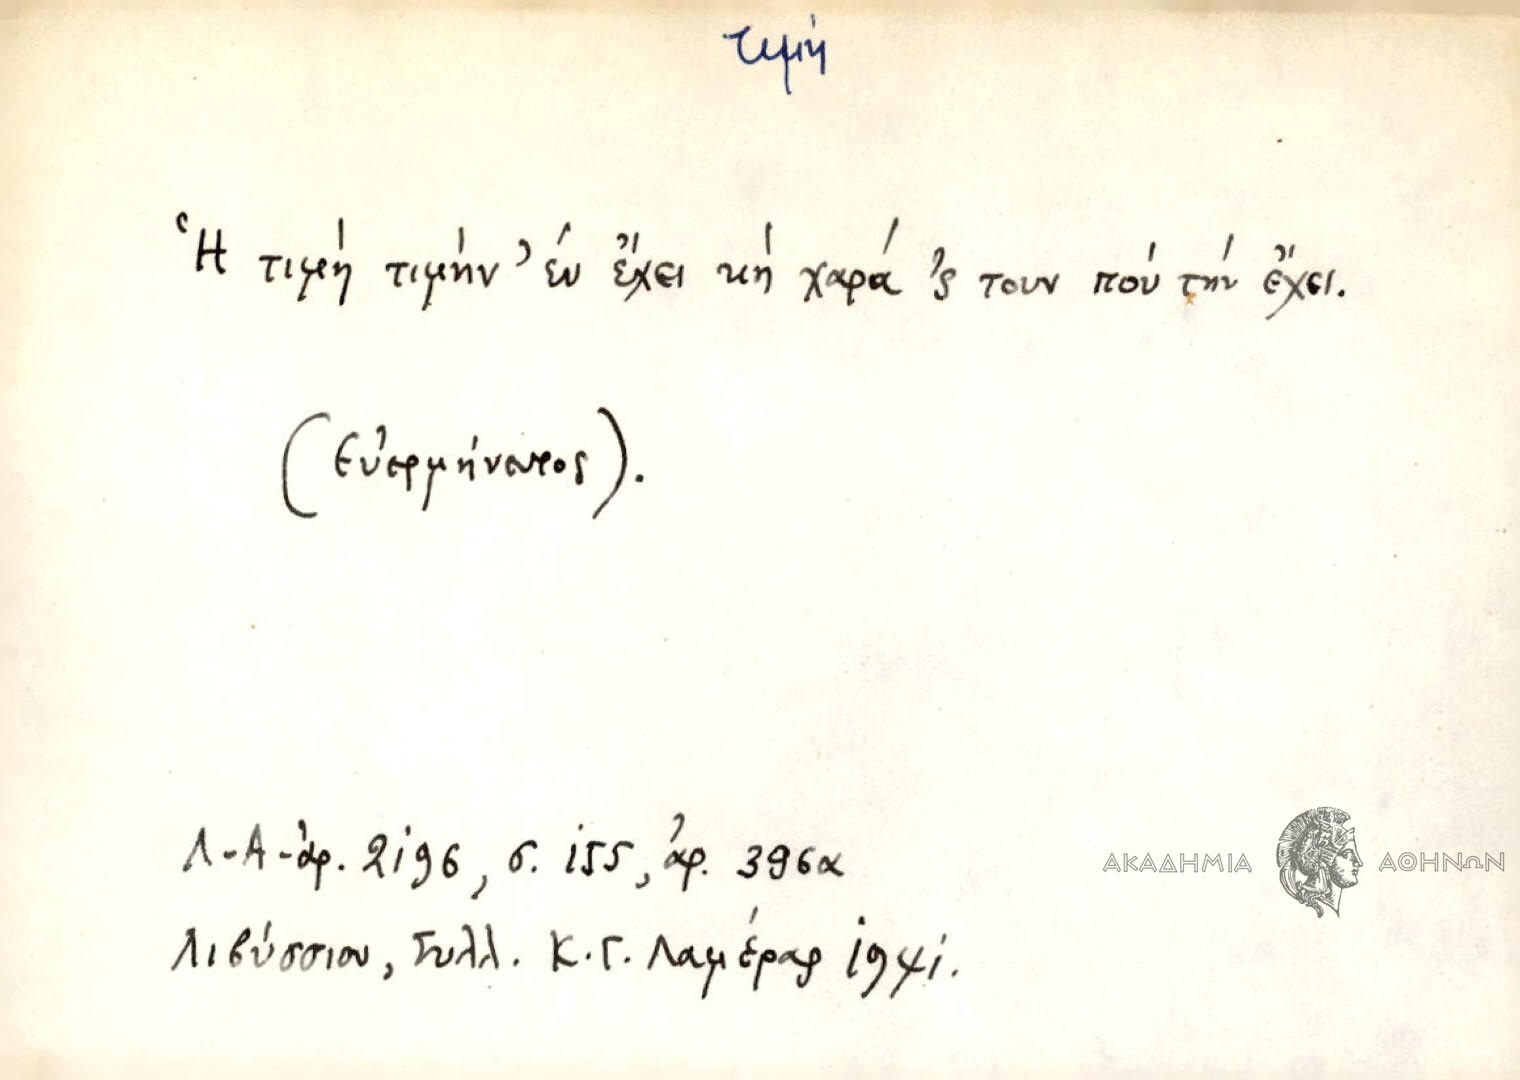 τιμή
Ἡ τιμή τιμήν ’ έν ἔχει κή χαρά ’ς τουν πού τήν ἔχει.
(Εὐερμήνευτος).
Λ-Α-ἀρ. 2196, σ. 155, ἀρ. 396α
ΑΚΑΔΗΜΙΑ ΑΘΗΝΩΝ
Λιβύσσιου, Συλλ. Κ.Γ. Λαμέρας 1941.